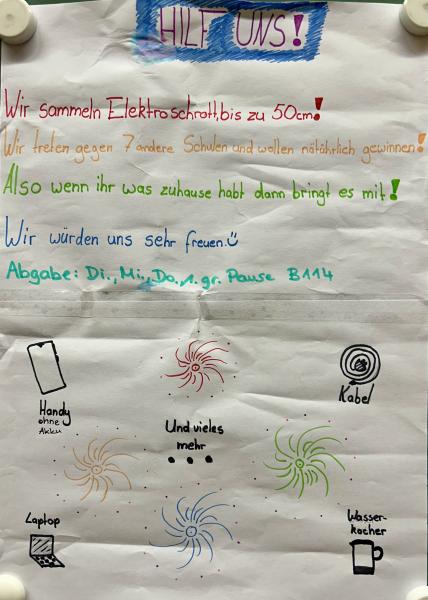 HILF UNS!
Wir sammeln Elektroschrott, bis zu 50cm!
Wir treten gegen 7 andere Schulen und wollen nätührlich gewinnen!
Also wenn ihr was zuhause habt dann bringt es mit!
Wir würden uns sehr freuen.
Abgabe: Di., Mi., Do., 1. gr. Pause B114
Handy
ohne
Akku
Kabel
Und vieles
mehr
...
Laptop
Wasser-
kocher